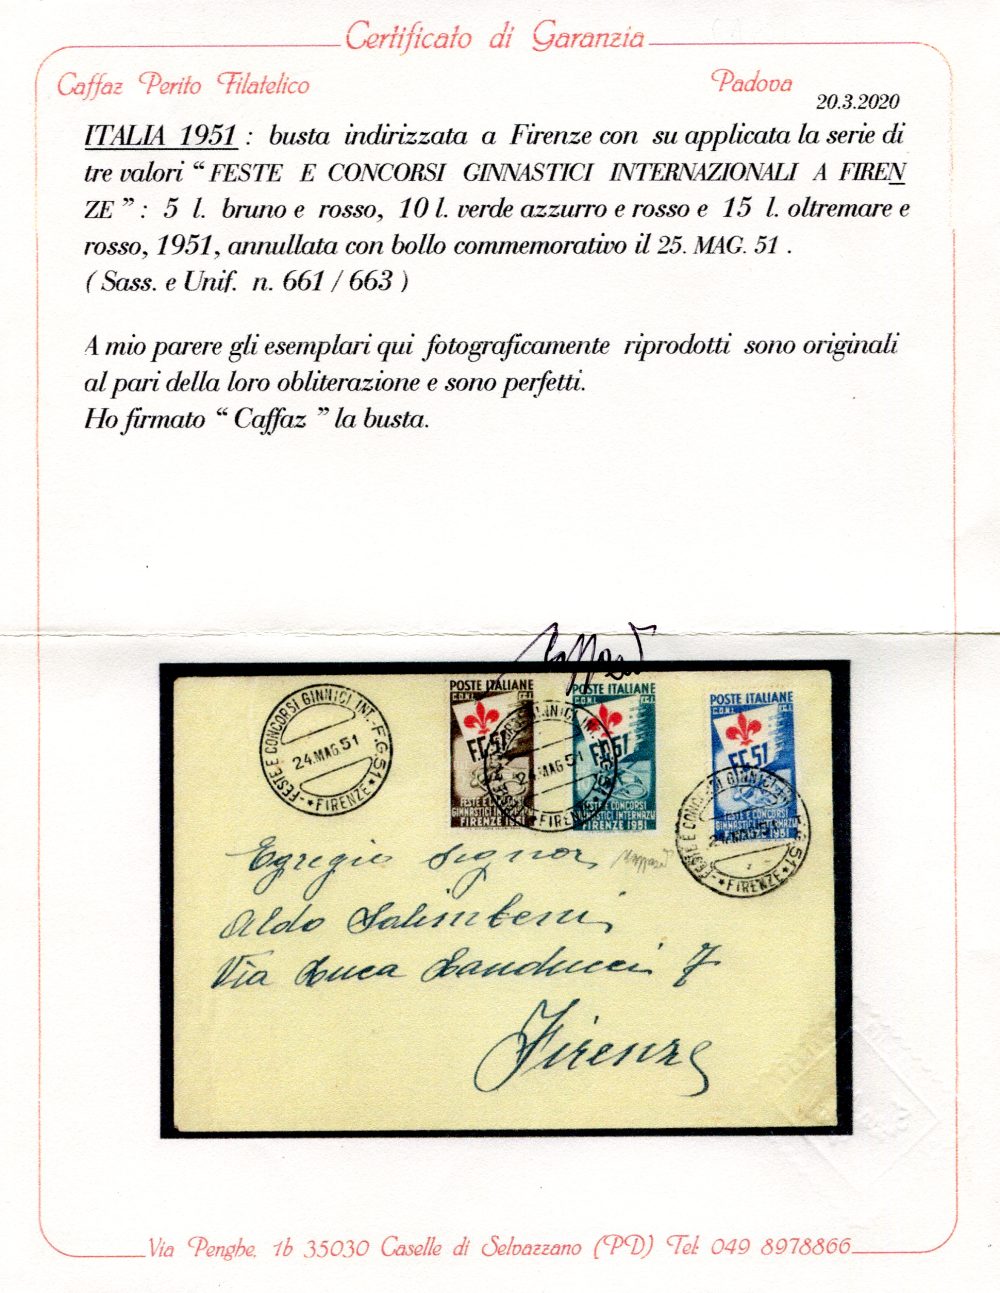 Certificato di Garanzia
Caffaz Perito Filatelico
Padova
20.3.2020
ITALIA 1951 : busta indirizzata a Firenze con su applicata la serie di
tre valori “ FESTE E CONCORSI GINNASTICI INTERNAZIONALI A FIREN
ZE ” : 5 l. bruno e rosso, 10 l. verde azzurro e rosso e 15 l. oltremare e
rosso, 1951, annullata con bollo commemorativo il 25. MAG. 51 .
( Sass. e Unif. n. 661 / 663 )
A mio parere gli esemplari qui fotograficamente riprodotti sono originali
al pari della loro obliterazione e sono perfetti.
Ho firmato “ Caffaz ” la busta.
Caffaz
FESTE E CONCORSI GINNICI INT.-F.G.51
24.MAG.51
*FIRENZE*
POSTE ITALIANE
C.O.N.I. F.G.I.
F.G.51
FESTE E CONCORSI
GINNASTICI INTERNAZLI
FIRENZE 1951
POSTE ITALIANE
C.O.N.I. F.G.I.
F.G.51
FESTE E CONCORSI
GINNASTICI INTERNAZLI
FIRENZE 1951
POSTE ITALIANE
F.G.51
FESTE E CONCORSI
GINNASTICI INTERNAZLI
FIRENZE 1951
MAG.51
FIRENZE
FESTE E CONCORSI GINNICI
24.MAG.51
*FIRENZE*
Egregio Signor
Caffaz
Aldo Salimbeni
Via Luca Landucci 7
Firenze
Via Penghe, 1b 35030 Caselle di Selvazzano (PD) Tel: 049 8978866